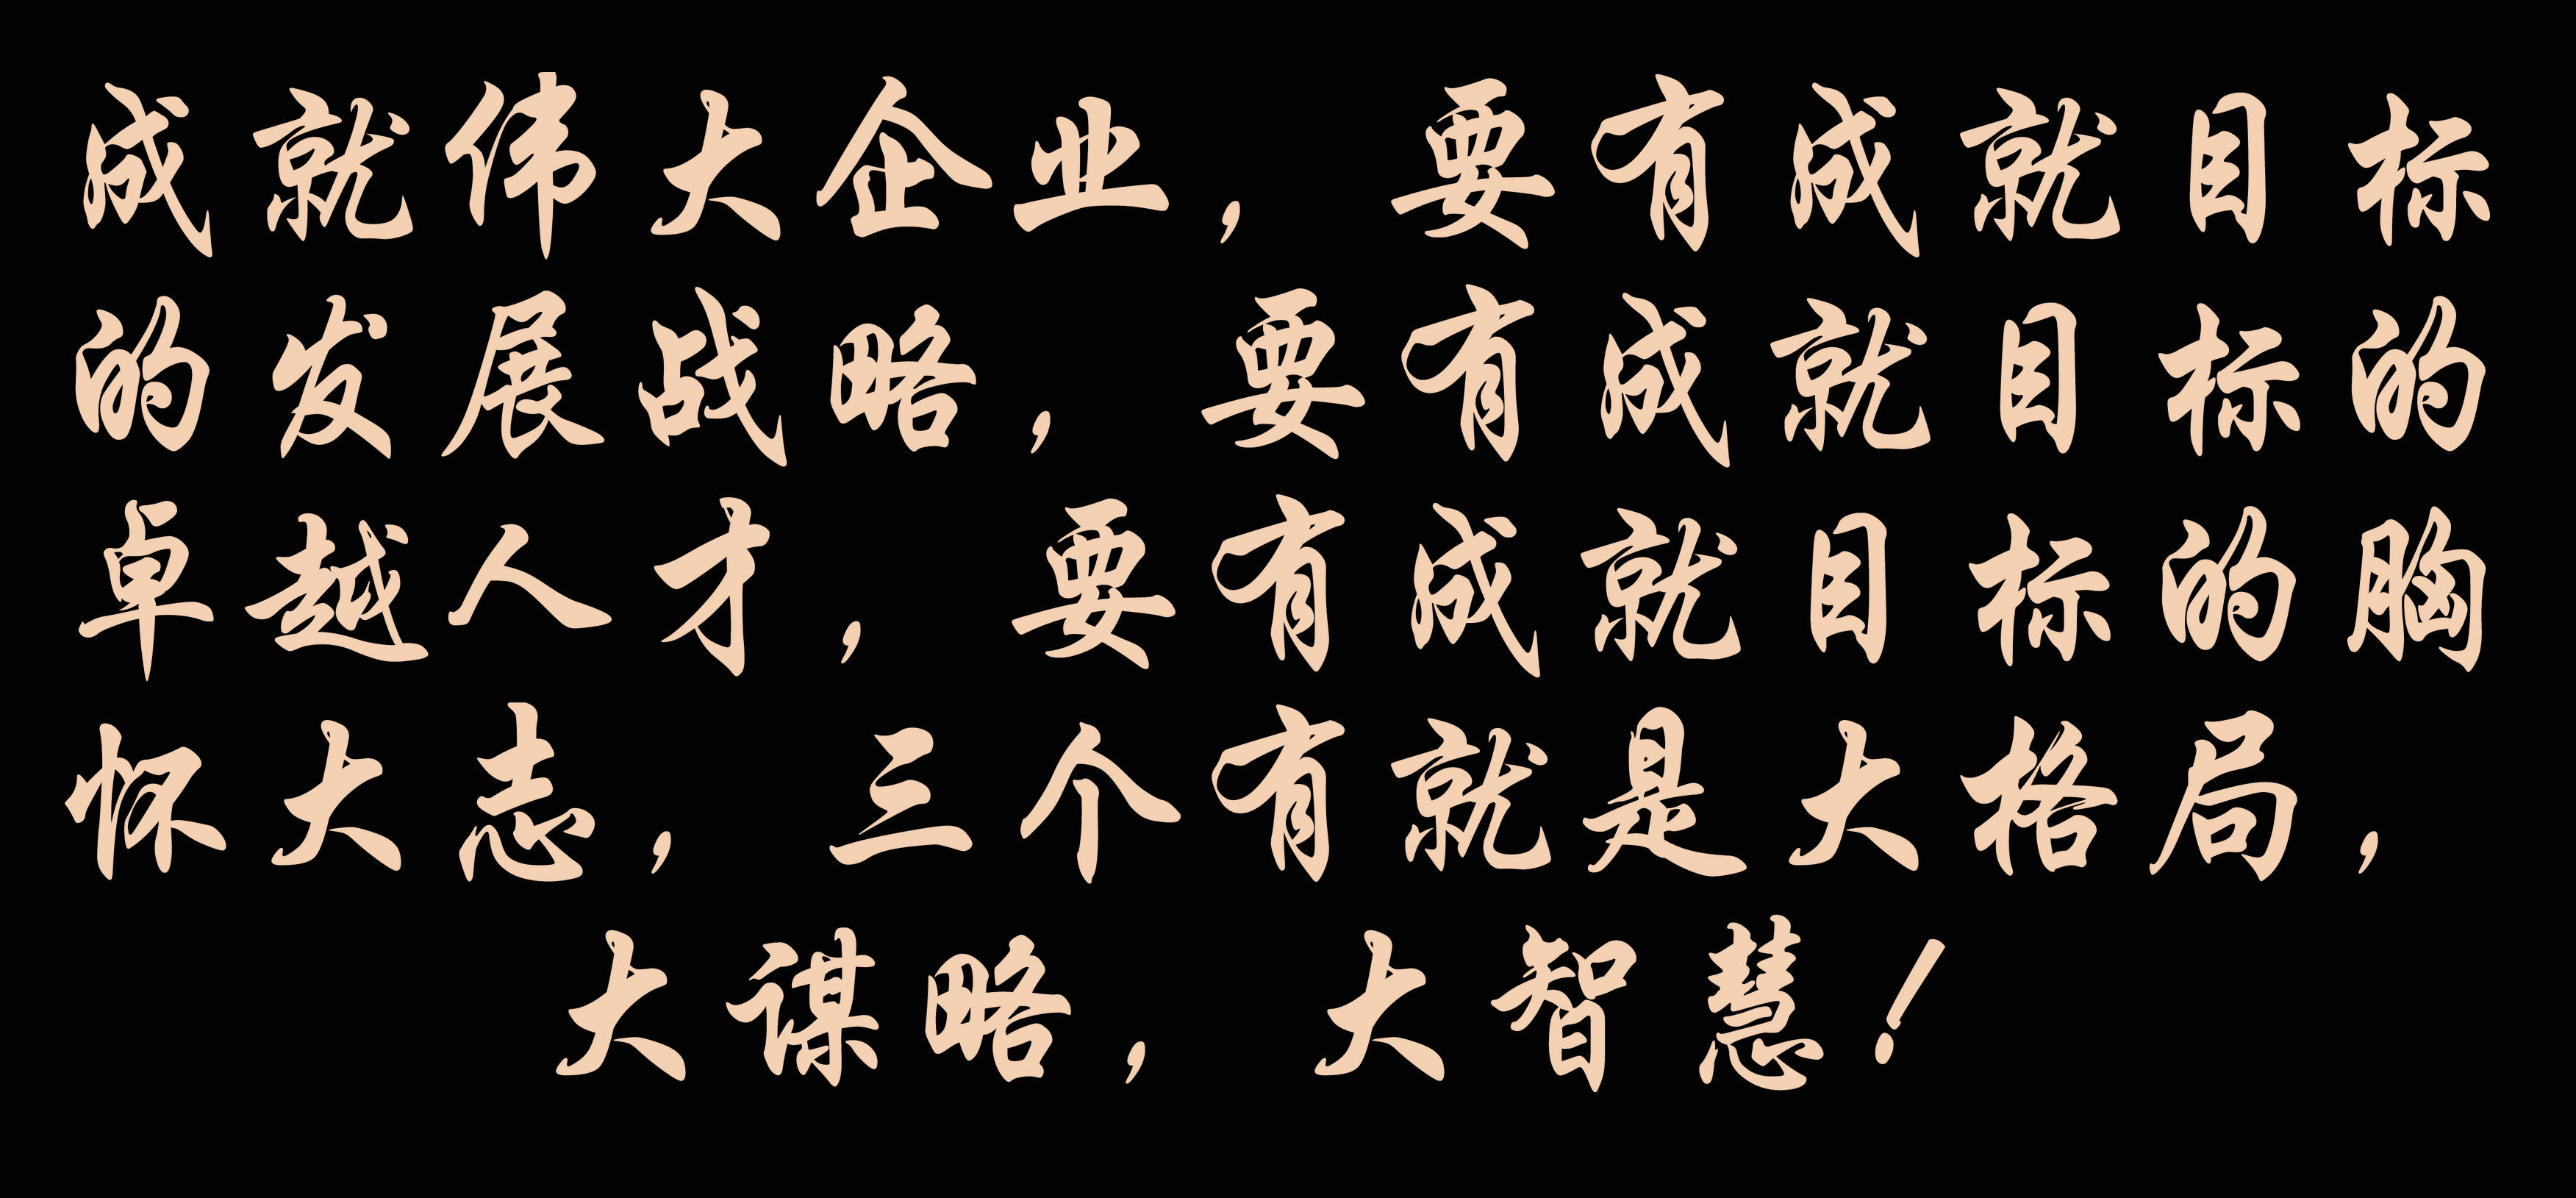 成就伟大企业，要有成就目标
的发展战略，要有成就目标的
卓越人才，要有成就目标的胸
怀大志，三个有就是大格局，
大谋略，大智慧！